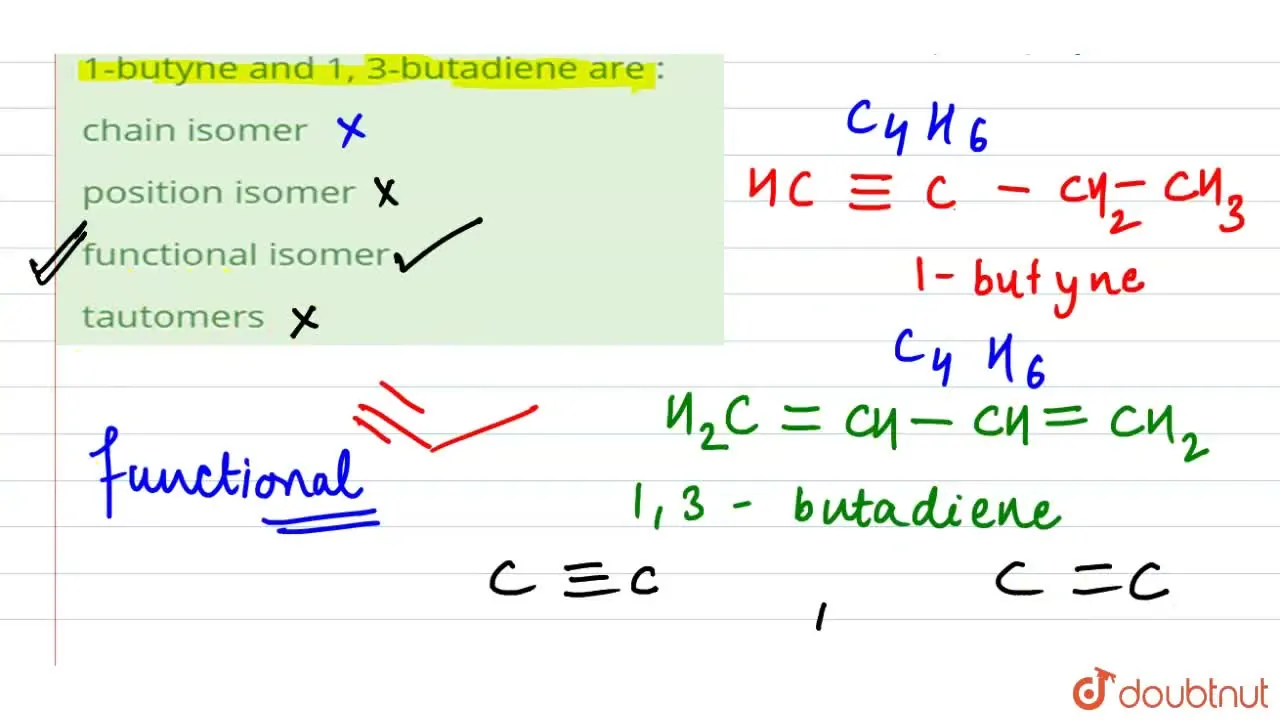 1-butyne and 1, 3-butadiene are :
chain isomer X
position isomer X
functional isomer
tautomers X
C4H6
HC ≡ C - CH2 - CH3
1- butyne
C4H6
H2C = CH - CH = CH2
1,3 - butadiene
functional
C ≡ C , C = C
doubtnut